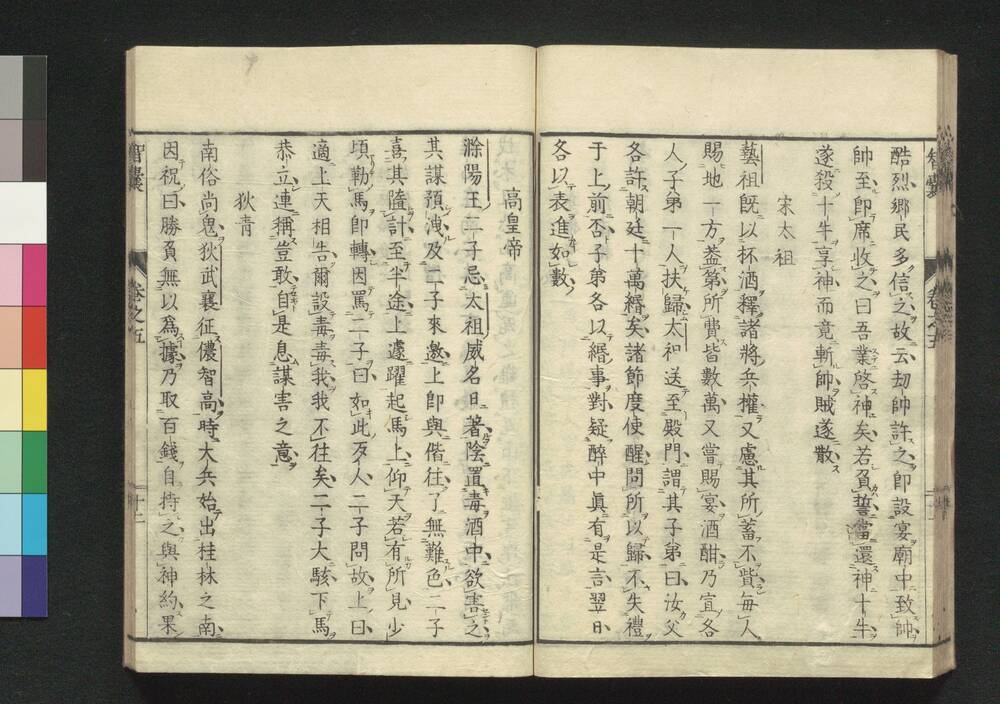 酷烈鄉民多信之故云刼帥許之即設宴廟中致帥
帥至即席收之曰吾業啓神矣若負誓當還神十牛
遂殺十牛享神而竟斬帥賊遂散
宋太祖
藝祖既以杯酒釋諸將兵權又慮其所蓄不貲每人
賜地一方蓋第所費皆數萬又嘗賜宴酒酣乃宣各
人子弟一人扶歸太祖送至殿門謂其子弟曰汝父
各許朝廷十萬緡矣諸節度使醒問所以歸不失禮
于上前否子弟各以緡事對疑醉中眞有是言翌日
各以表進如數
高皇帝
滁陽王二子忌太祖威名日著陰置毒酒中欲害之
其謀預洩及二子來邀上即與偕往了無難色二子
喜其隨計至半途上遽躍起馬上仰天若有所見少
頃勒馬即轉因罵二子曰如此歹人二子問故上曰
適上天相告爾設毒毒我我不往矣二子大駭下馬
恭立連稱豈敢自是息謀害之意
狄青
南俗尚鬼狄武襄征儂智高時大兵始出桂林之南
因祝曰勝負無以爲據乃取百錢自持之與神約果
智囊
卷之五
十二